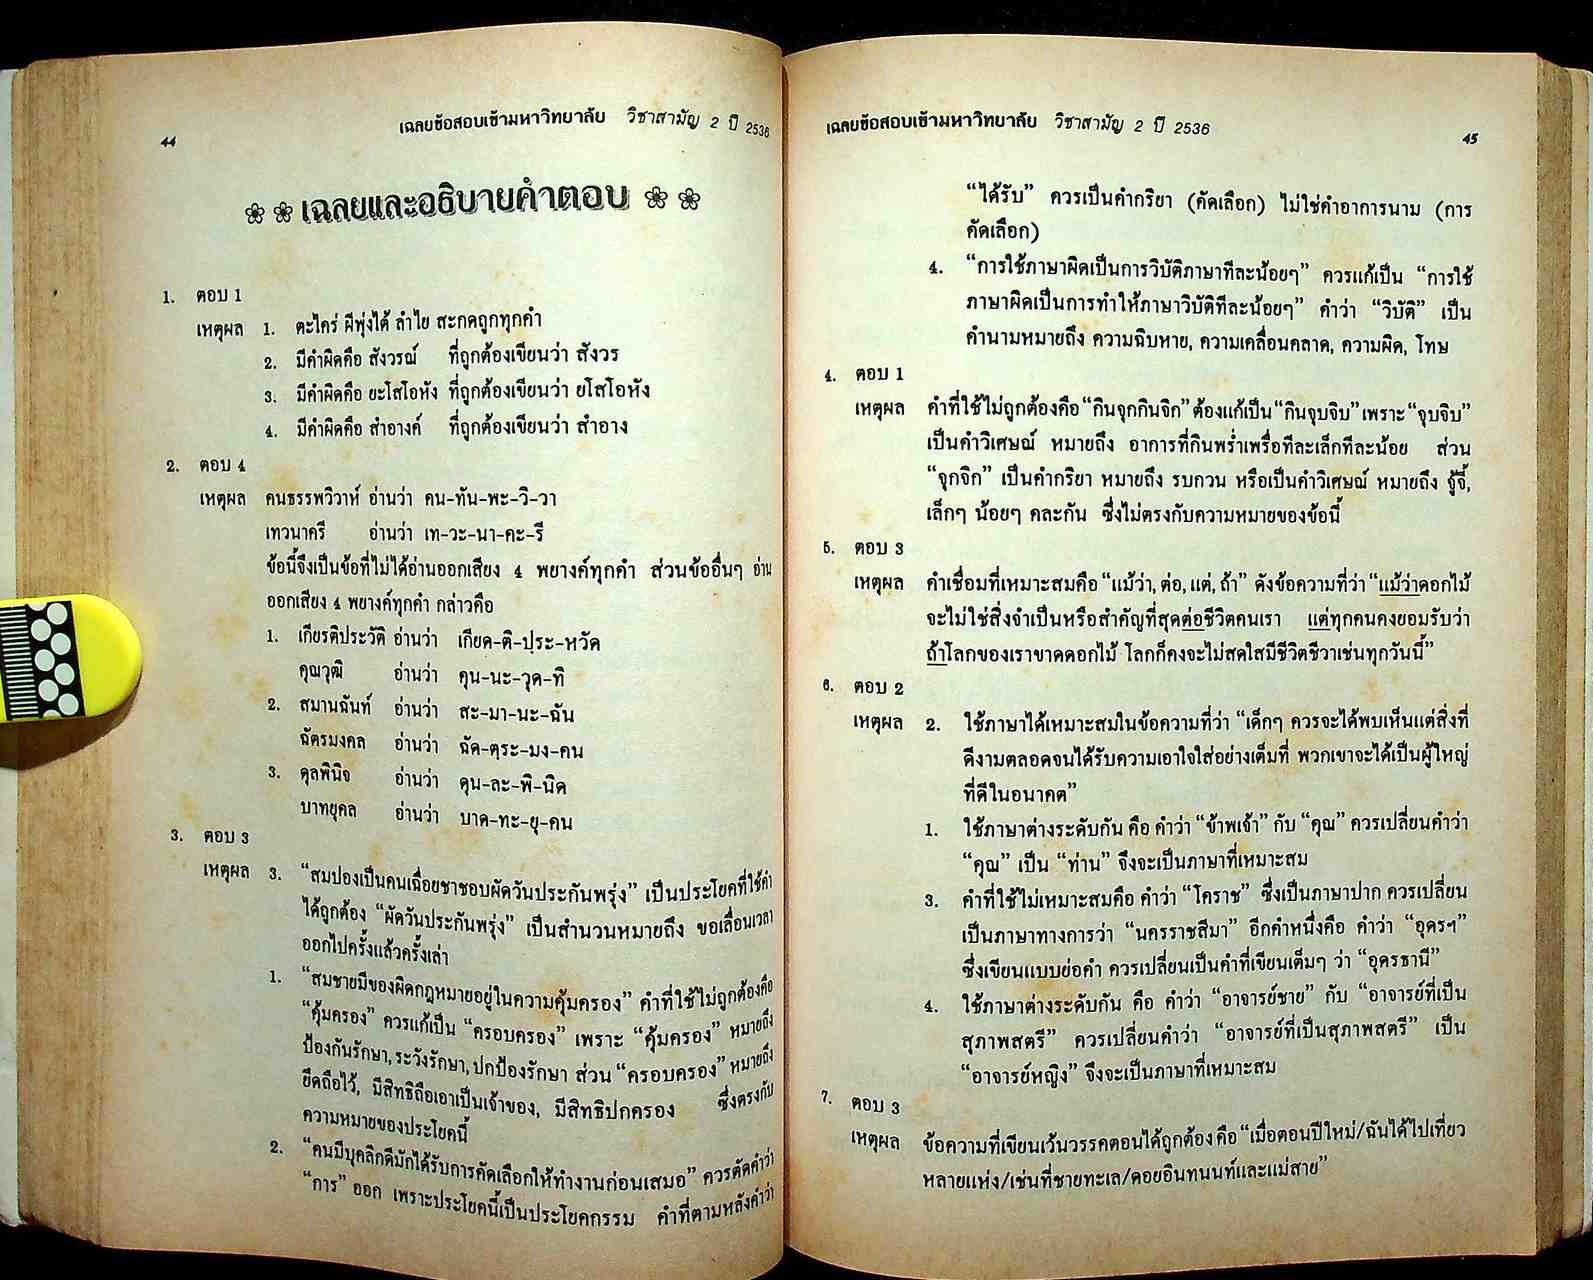 44
เฉลยข้อสอบเข้ามหาวิทยาลัย วิชาสามัญ 2 ปี 2536
เฉลยและอธิบายคำตอบ
1. ตอบ 1
เหตุผล 1. ตะไคร่ ผีพุ่งไต้ ลำไย สะกดถูกทุกคำ
2. มีคำผิดคือ สังวรณ์ ที่ถูกต้องเขียนว่า สังวร
3. มีคำผิดคือ ยะโสโอหัง ที่ถูกต้องเขียนว่า ยโสโอหัง
4. มีคำผิดคือ สำอางค์ ที่ถูกต้องเขียนว่า สำอาง
2. ตอบ 4
เหตุผล คนธรรพวิวาห์ อ่านว่า คน-ทัน-พะ-วิ-วา
เทวนาครี อ่านว่า เท-วะ-นา-คะ-รี
ข้อนี้จึงเป็นข้อที่ไม่ได้อ่านออกเสียง 4 พยางค์ทุกคำ ส่วนข้ออื่นๆ อ่าน
ออกเสียง 4 พยางค์ทุกคำ กล่าวคือ
1. เกียรติประวัติ อ่านว่า เกียด-ติ-ปฺระ-หวัด
คุณวุฒิ อ่านว่า คุน-นะ-วุด-ทิ
2. สมานฉันท์ อ่านว่า สะ-มา-นะ-ฉัน
ฉัตรมงคล อ่านว่า ฉัด-ตฺระ-มง-คน
3. ดุลพินิจ อ่านว่า ดุน-ละ-พิ-นิด
บาทยุคล อ่านว่า บาด-ทะ-ยุ-คน
3. ตอบ 3
เหตุผล 3. “สมปองเป็นคนเฉื่อยชาชอบผัดวันประกันพรุ่ง” เป็นประโยคที่ใช้คำ
ได้ถูกต้อง “ผัดวันประกันพรุ่ง” เป็นสำนวนหมายถึง ขอเลื่อนเวลา
ออกไปครั้งแล้วครั้งเล่า
1. “สมชายมีของผิดกฎหมายอยู่ในความคุ้มครอง” คำที่ใช้ไม่ถูกต้องคือ
“คุ้มครอง” ควรแก้เป็น “ครอบครอง” เพราะ “คุ้มครอง” หมายถึง
ป้องกันรักษา, ระวังรักษา, ปกป้องรักษา ส่วน “ครอบครอง” หมายถึง
ยึดถือไว้, มีสิทธิถือเอาเป็นเจ้าของ, มีสิทธิปกครอง ซึ่งตรงกับ
ความหมายของประโยคนี้
2. “คนมีบุคลิกดีมักได้รับการคัดเลือกให้ทำงานก่อนเสมอ” ควรตัดคำว่า
“การ” ออก เพราะประโยคนี้เป็นประโยคกรรม คำที่ตามหลังคำว่า
เฉลยข้อสอบเข้ามหาวิทยาลัย วิชาสามัญ 2 ปี 2536
45
“ได้รับ” ควรเป็นคำกริยา (คัดเลือก) ไม่ใช่คำอาการนาม (การ
คัดเลือก)
4. “การใช้ภาษาผิดเป็นการวิบัติภาษาทีละน้อยๆ” ควรแก้เป็น “การใช้
ภาษาผิดเป็นการทำให้ภาษาวิบัติทีละน้อยๆ” คำว่า “วิบัติ” เป็น
คำนามหมายถึง ความฉิบหาย, ความเคลื่อนคลาด, ความผิด, โทษ
4. ตอบ 1
เหตุผล คำที่ใช้ไม่ถูกต้องคือ “กินจุกกินจิก” ต้องแก้เป็น “กินจุบจิบ” เพราะ “จุบจิบ”
เป็นคำวิเศษณ์ หมายถึง อาการที่กินพร่ำเพรื่อทีละเล็กทีละน้อย ส่วน
“จุกจิก” เป็นคำกริยา หมายถึง รบกวน หรือเป็นคำวิเศษณ์ หมายถึง จู้จี้,
เล็กๆ น้อยๆ คละกัน ซึ่งไม่ตรงกับความหมายของข้อนี้
5. ตอบ 3
เหตุผล คำเชื่อมที่เหมาะสมคือ “แม้ว่า, ต่อ, แต่, ถ้า” ดังข้อความที่ว่า “แม้ว่าดอกไม้
จะไม่ใช่สิ่งจำเป็นหรือสำคัญที่สุดต่อชีวิตคนเรา แต่ทุกคนคงยอมรับว่า
ถ้าโลกของเราขาดดอกไม้ โลกก็คงจะไม่สดใสมีชีวิตชีวาเช่นทุกวันนี้”
6. ตอบ 2
เหตุผล 2. ใช้ภาษาได้เหมาะสมในข้อความที่ว่า “เด็กๆ ควรจะได้พบเห็นแต่สิ่งที่
ดีงามตลอดจนได้รับความเอาใจใส่อย่างเต็มที่ พวกเขาจะได้เป็นผู้ใหญ่
ที่ดีในอนาคต”
1. ใช้ภาษาต่างระดับกัน คือ คำว่า “ข้าพเจ้า” กับ “คุณ” ควรเปลี่ยนคำว่า
“คุณ” เป็น “ท่าน” จึงจะเป็นภาษาที่เหมาะสม
3. คำที่ใช้ไม่เหมาะสมคือ คำว่า “โคราช” ซึ่งเป็นภาษาปาก ควรเปลี่ยน
เป็นภาษาทางการว่า “นครราชสีมา” อีกคำหนึ่งคือ คำว่า “อุดรฯ”
ซึ่งเขียนแบบย่อคำ ควรเปลี่ยนเป็นคำที่เขียนเต็มๆ ว่า “อุดรธานี”
4. ใช้ภาษาต่างระดับกัน คือ คำว่า “อาจารย์ชาย” กับ “อาจารย์ที่เป็น
สุภาพสตรี” ควรเปลี่ยนคำว่า “อาจารย์ที่เป็นสุภาพสตรี” เป็น
“อาจารย์หญิง” จึงจะเป็นภาษาที่เหมาะสม
7. ตอบ 3
เหตุผล ข้อความที่เขียนเว้นวรรคตอนได้ถูกต้อง คือ “เมื่อตอนปีใหม่/ฉันได้ไปเที่ยว
หลายแห่ง/เช่นที่ชายทะเล/ดอยอินทนนท์และแม่สาย”